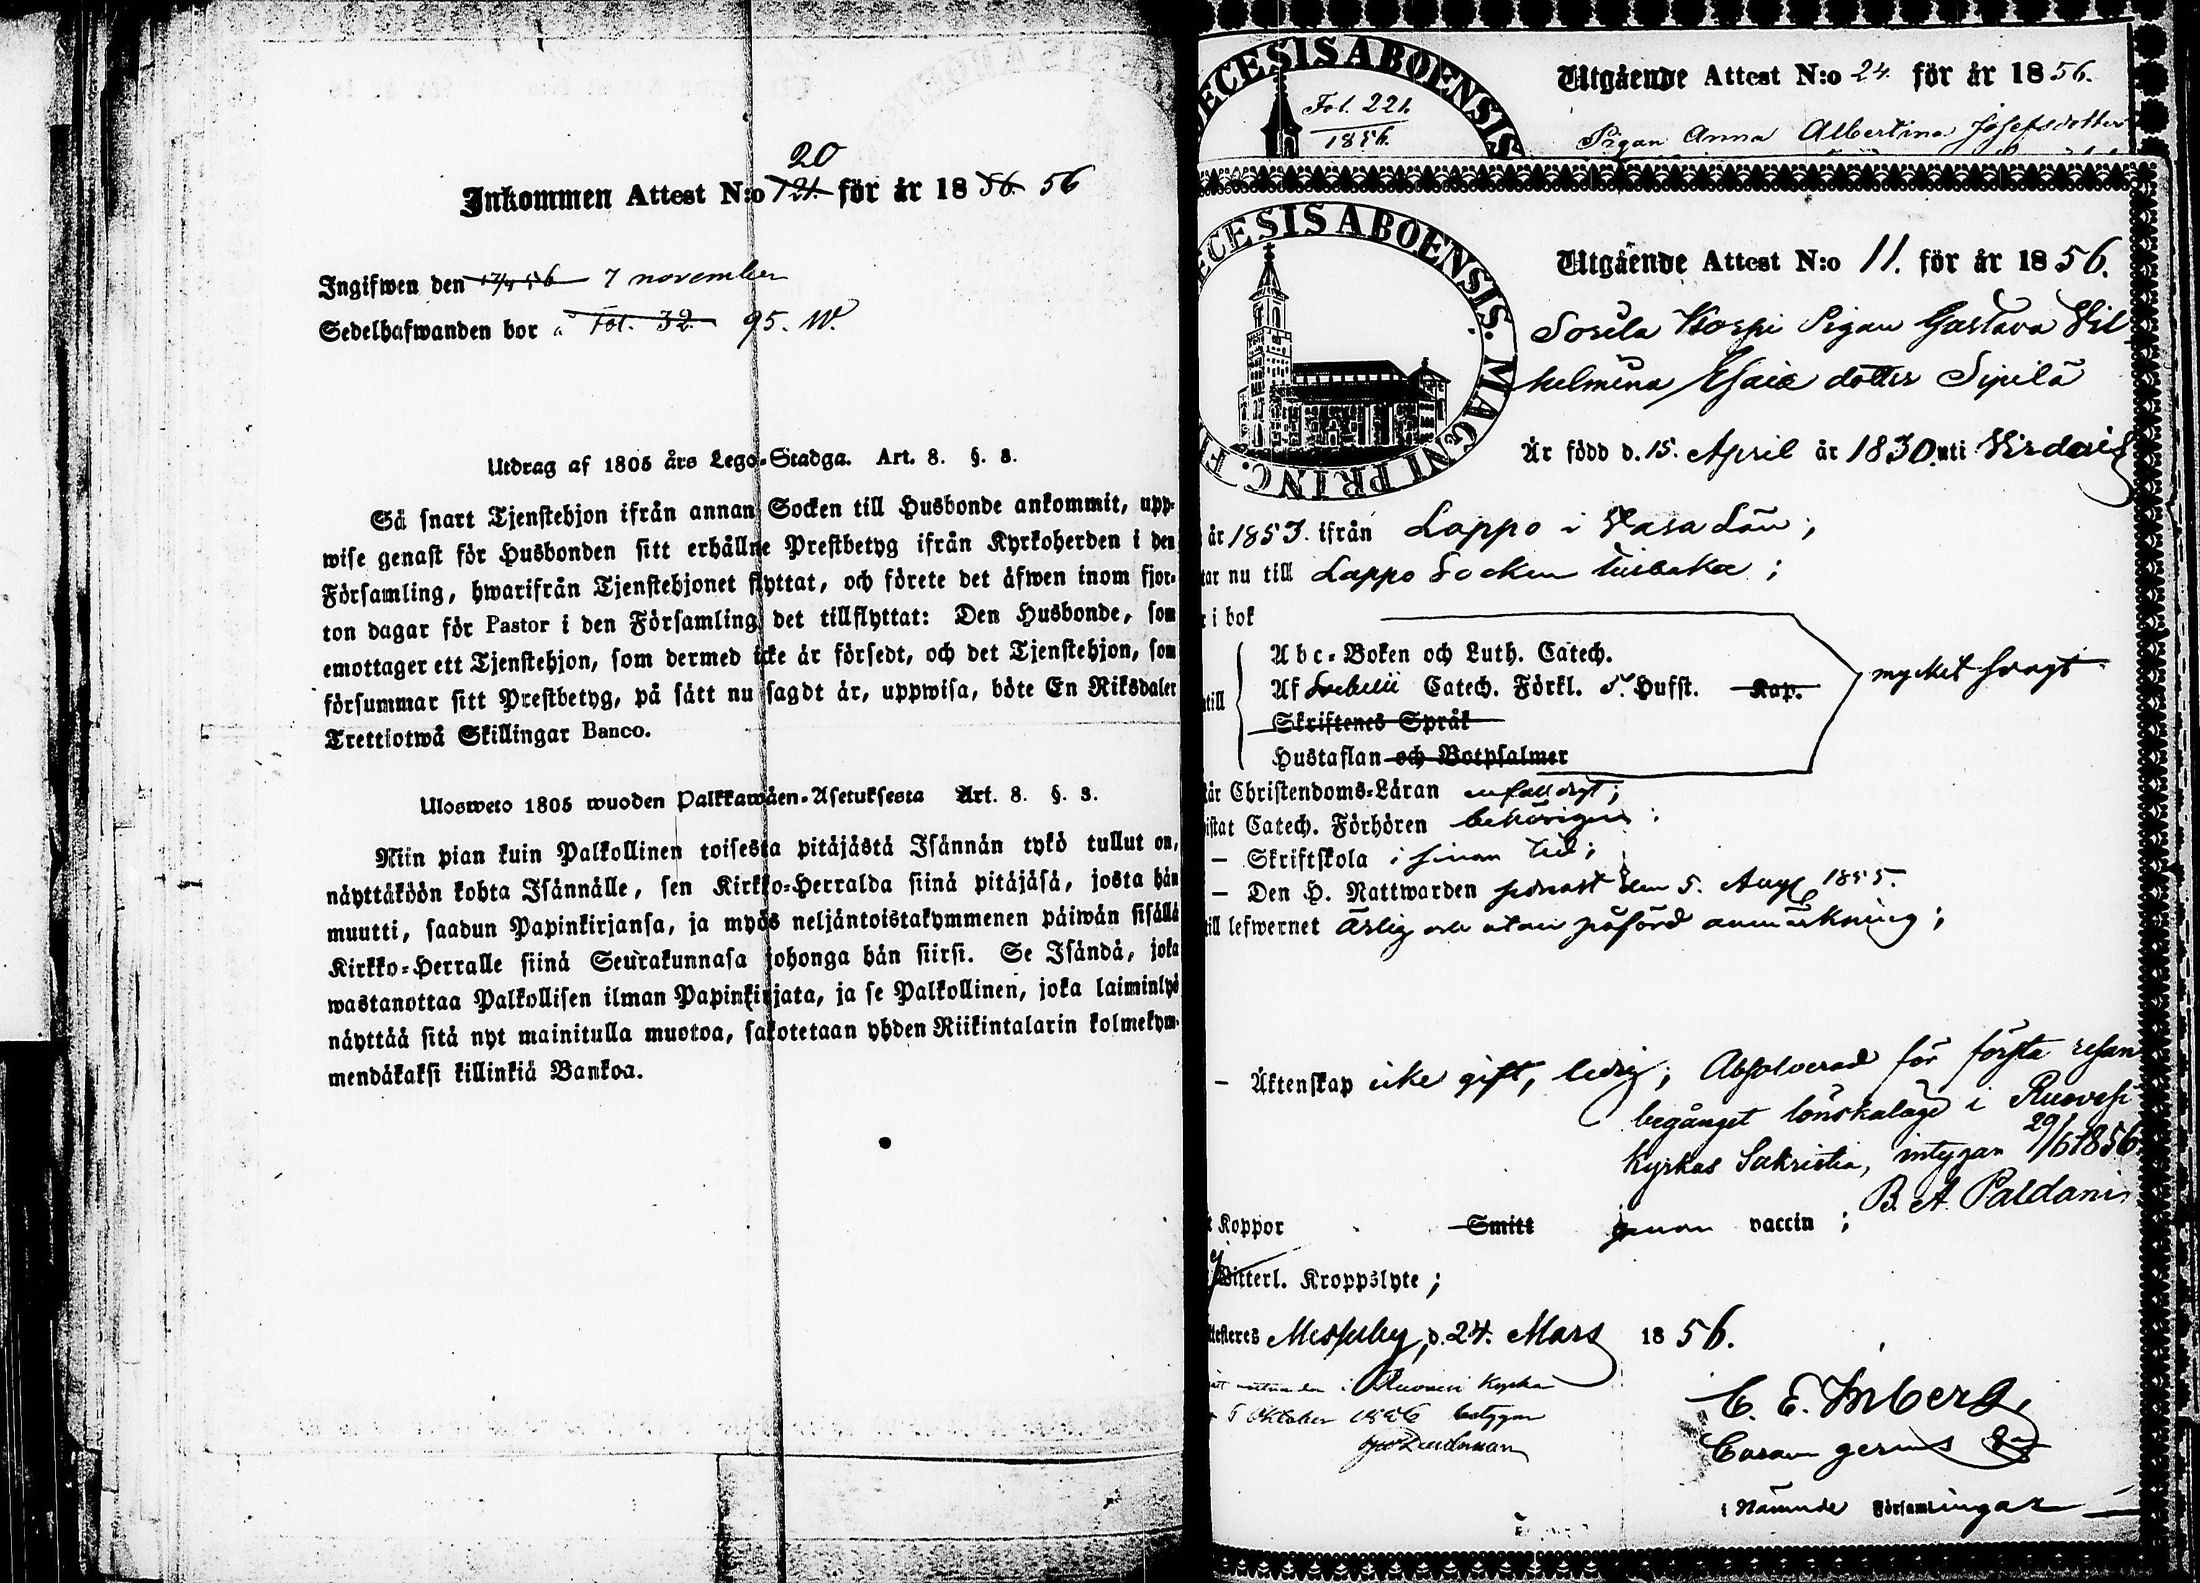 20
Inkommen Attest N:o 121. för år 18 56 56
Ingifwen den 17/4 56 7 november
Sedelhafwanden bor å Fol. 32. 95. W.
Utdrag af 1805 års Lego-Stadga. Art. 8. §. 8.
Så snart Tjenstehjon ifrån annan Socken till Husbonde ankommit, upp-
wise genast för Husbonden sitt erhållne Prestbetyg ifrån Kyrkoherden i den
Församling, hwarifrån Tjenstehjonet flyttat, och förete det äfwen inom fjor-
ton dagar för Pastor i den Församling det tillflyttat: Den Husbonde, som
emottager ett Tjenstehjon, som dermed icke är försedt, och det Tjenstehjon, som
försummar sitt Prestbetyg, på sätt nu sagdt är, uppwisa, böte En Riksdaler
Trettiotwå Skillingar Banco.
Ulosweto 1805 wuoden Palkkawäen-Asetuksesta Art. 8. §. 8.
Niin pian kuin Palkollinen toisesta pitäjästä Isännän tykö tullut on,
näyttäköön kohta Isännälle, sen Kirkko-Herralda siinä pitäjäsä, josta hän
muutti, saadun Papinkirjansa, ja myös neljäntoistakymmenen päiwän sisällä
Kirkko-Herralle siinä Seurakunnasa johonga hän siirsi. Se Isändä, joka
wastanottaa Palkollisen ilman Papinkirjata, ja se Palkollinen, joka laiminlyö
näyttää sitä nyt mainitulla muotoa, sakotetaan yhden Riikintalarin kolmekym-
mendäkaksi killinkiä Bankoa.
ECESIS ABOENSIS
Fol. 221.
1856.
Utgående Attest N:o 24. för år 1856.
Pigan Anna Albertina Josefsdotter
ECESIS ABOENSIS. MAGNI PRINC. F
Utgående Attest N:o 11. för år 1856.
Sorila Korpi Pigan Gustava Vil
helmina Esaia dotter Sipilä
Är född d. 15. April år 1830. uti Virdois
år 1853. ifrån Lappo i Vasa Län;
tar nu till Lappo Socken tillbaka;
i bok
Abc-Boken och Luth. Catech.
till Af Svebelii Catech. Förkl. o. Hufst. Kap.
mycket svagt
Skriftenes Språk
Hustaflan och Botpsalmer
är Christendoms-Läran enfaldigt;
istat Catech. Förhören behörigen;
— Skriftskola i sinom tid;
— Den H. Nattwarden sednast den 5. Aug 1855.
till lefwernet Ärlig och utan påförd anmärkning;
— Äktenskap icke gift, ledig; Absolverad för första resan
begånget lönskaläge i Ruovesi
Kyrkas Sakristia, intygan 29/6 1856
B. A. Paldani
Koppor Smitt genom vaccin;
ej Witterl. Kroppslyte;
ttesteres Messuby, d. 24. Mars 1856.
i Ruovesi Kyrka
5 Oktober 1856 betygar
C. E. Inberg,
i Nämnde Församlingar